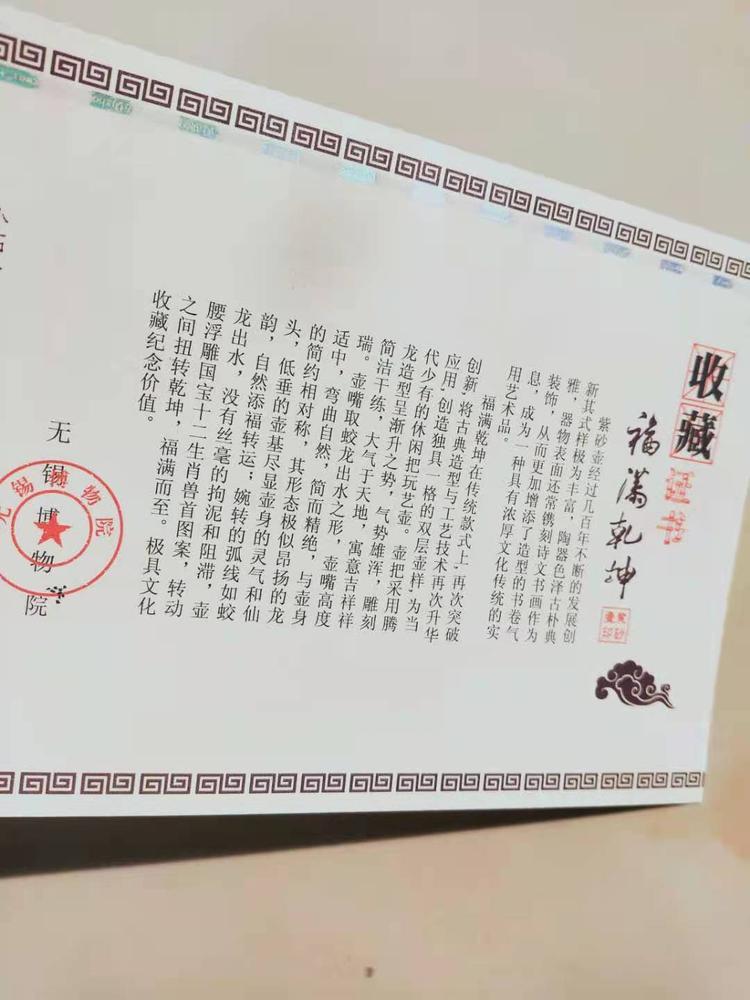 收藏
福满乾坤
紫砂壶印
紫砂壶经过几百年不断的发展创
新其式样极为丰富，陶器色泽古朴典
雅，器物表面还常镌刻诗文书画作为
装饰，从而更加增添了造型的书卷气
息，成为一种具有浓厚文化传统的实
用艺术品。
福满乾坤在传统款式上，再次突破
创新，将古典造型与工艺技术再次升华
应用，创造独具一格的双层壶样，为当
代少有的休闲把玩艺壶。壶把采用腾
龙造型呈渐升之势，气势雄浑，雕刻
简洁干练，大气于天地，寓意吉祥祥
瑞。壶嘴取蛟龙出水之形，壶嘴高度
适中，弯曲自然，简而精绝，与壶身
的简约相对称，其形态极似昂扬的龙
头，低垂的壶基尽显壶身的灵气和仙
韵，自然添福转运；婉转的弧线如蛟
龙出水，没有丝毫的拘泥和阻滞，壶
腰浮雕国宝十二生肖兽首图案，转动
之间扭转乾坤，福满而至。极具文化
收藏纪念价值。
无锡博物院
无锡博物院